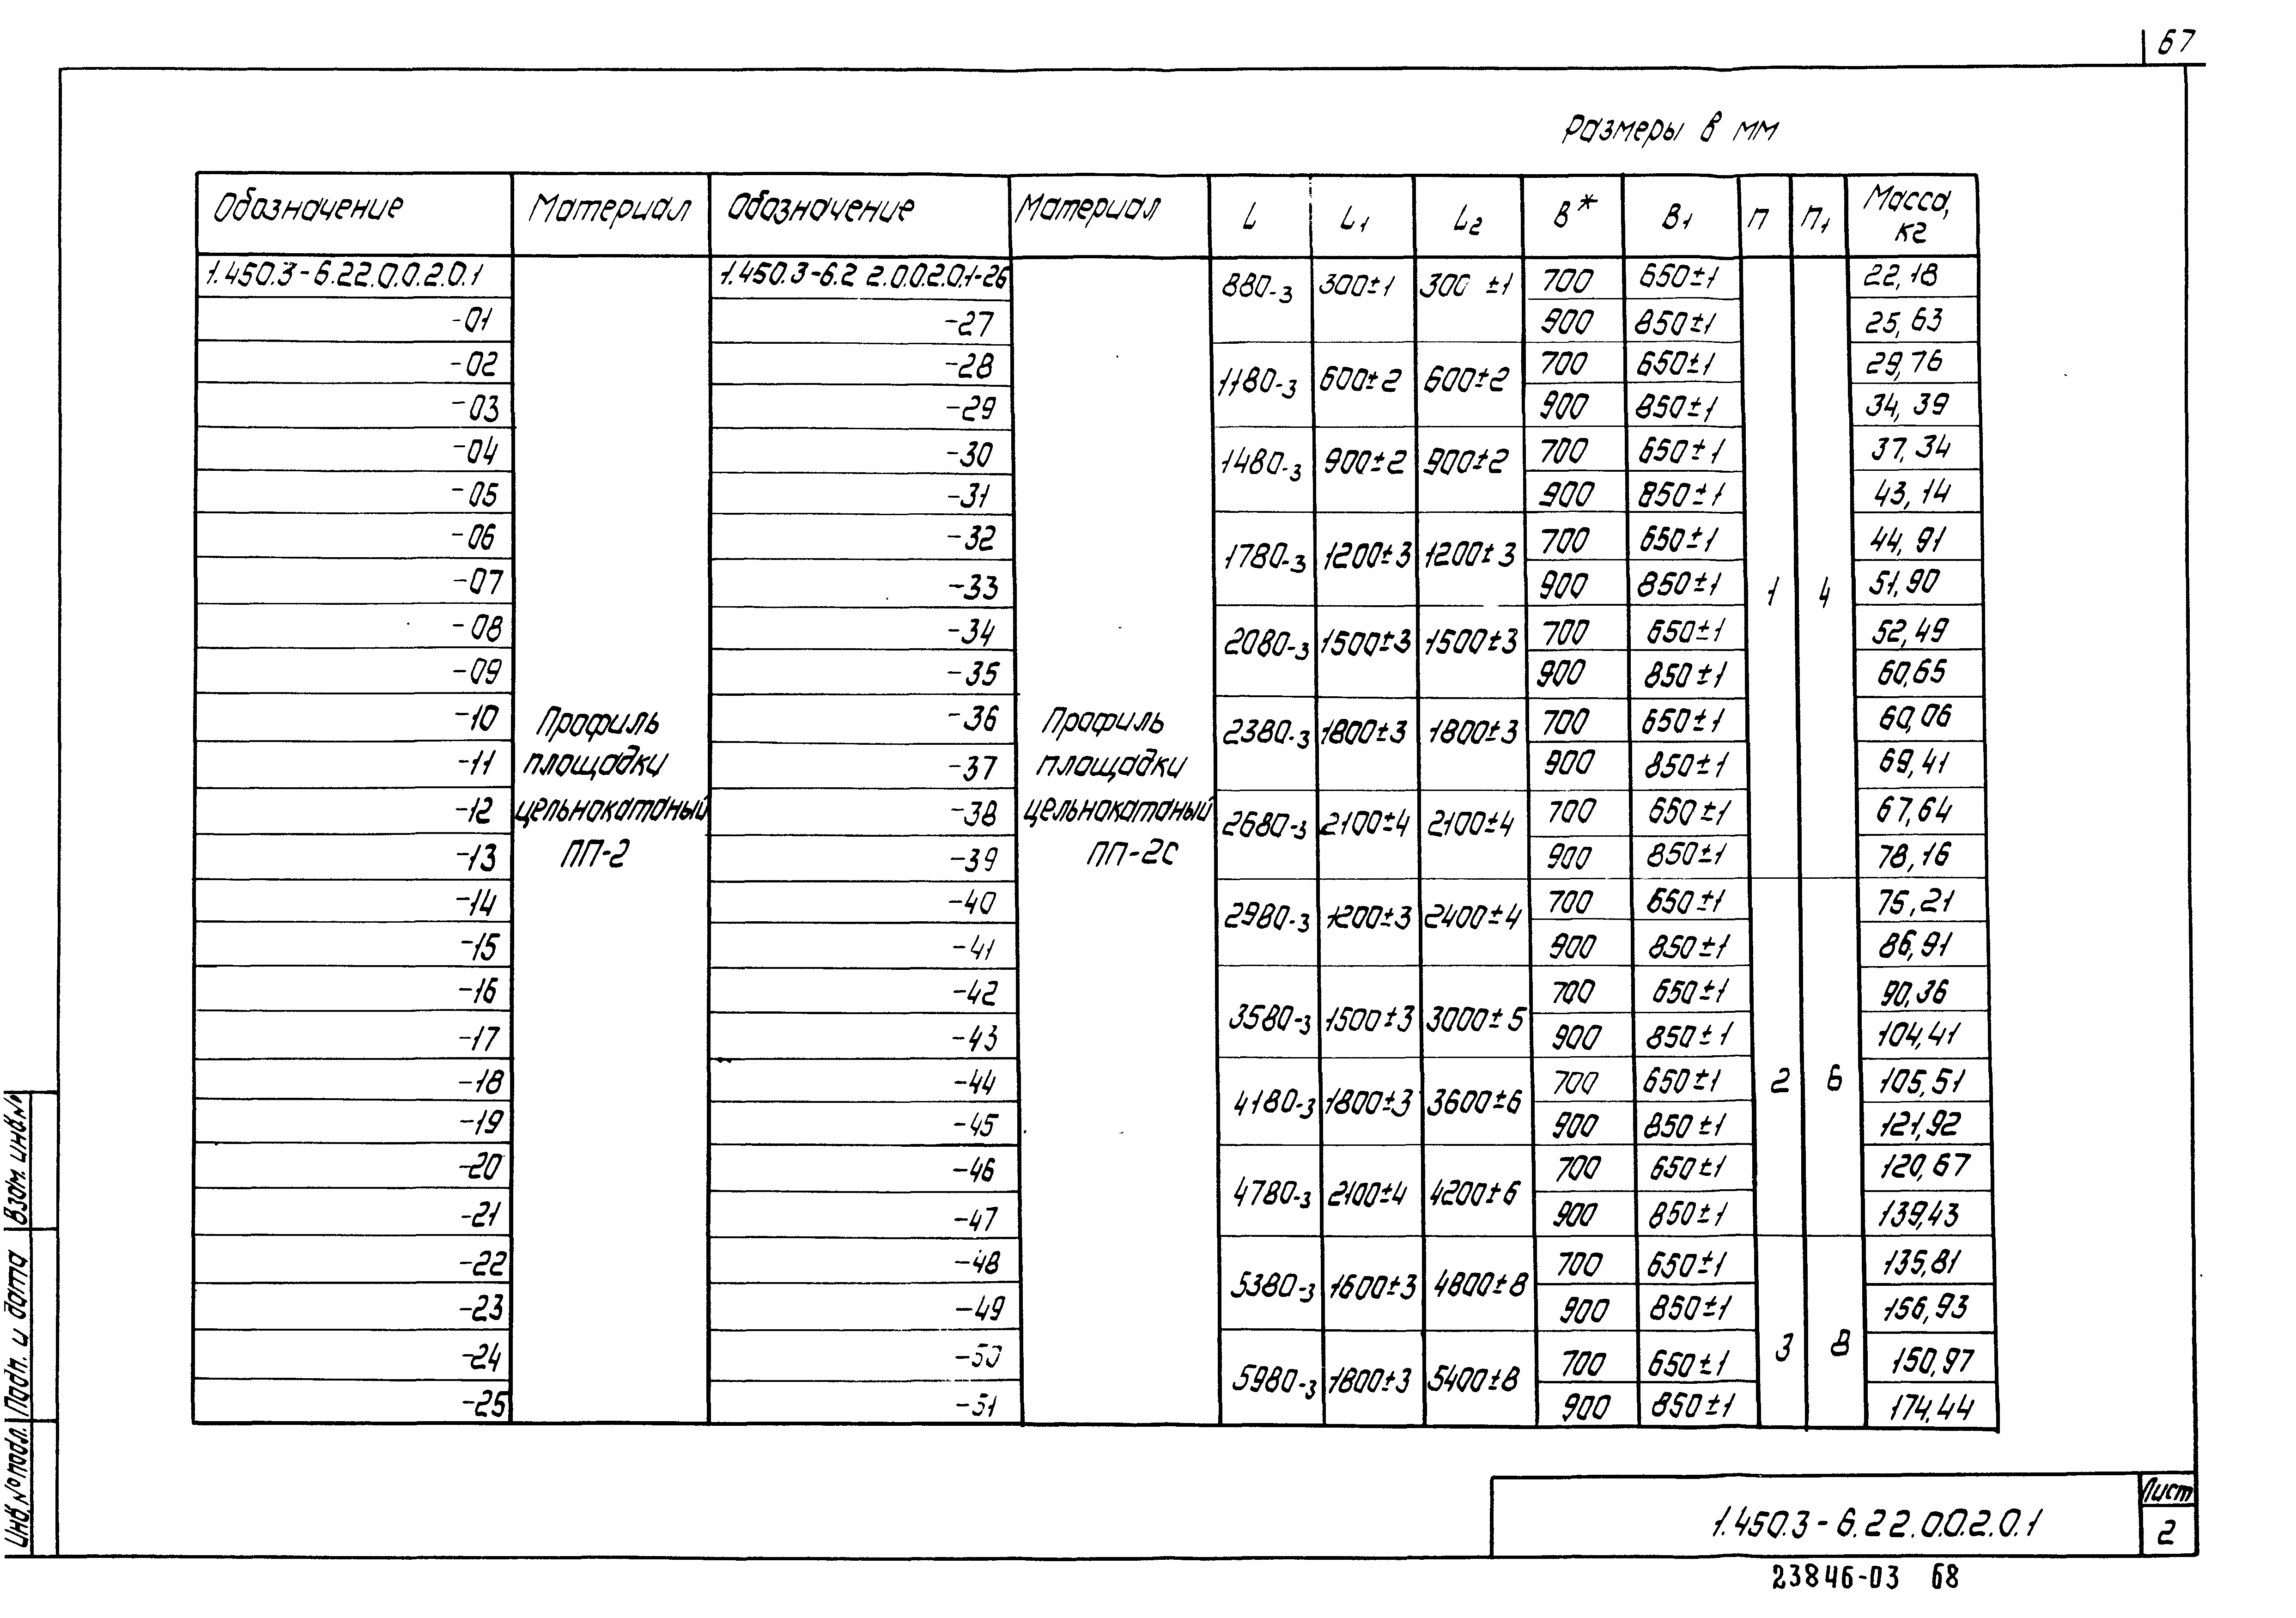 67
Размеры в мм
Обозначение Материал Обозначение Материал L L1 L2 B* B1 п п1 Масса, кг
1.450.3-6.22.0.0.2.0.1 1.450.3-6.2 2.0.0.2.0.1-26 880-3 300±1 300 ±1 700 650±1 22,18
-01 -27 900 850±1 25,63
-02 -28 1180-3 600±2 600±2 700 650±1 29,76
-03 -29 900 850±1 34,39
-04 -30 1480-3 900±2 900±2 700 650±1 37,34
-05 -31 900 850±1 43,14
-06 -32 1780-3 1200±3 1200±3 700 650±1 44,91
-07 -33 900 850±1 1 4 51,90
-08 -34 2080-3 1500±3 1500±3 700 650±1 52,49
-09 -35 900 850±1 60,65
-10 Профиль -36 Профиль 2380-3 1800±3 1800±3 700 650±1 60,06
-11 площадки -37 площадки 900 850±1 69,41
-12 цельнокатаный -38 цельнокатаный 2680-3 2100±4 2100±4 700 650±1 67,64
-13 ПП-2 -39 ПП-2С 900 850±1 78,16
-14 -40 2980-3 1200±3 2400±4 700 650±1 75,21
-15 -41 900 850±1 86,91
-16 -42 3580-3 1500±3 3000±5 700 650±1 90,36
-17 -43 900 850±1 104,41
-18 -44 4180-3 1800±3 3600±6 700 650±1 2 6 105,51
-19 -45 900 850±1 121,92
-20 -46 4780-3 2100±4 4200±6 700 650±1 120,67
-21 -47 900 850±1 139,43
-22 -48 5380-3 1600±3 4800±8 700 650±1 135,81
-23 -49 900 850±1 156,93
-24 -50 5980-3 1800±3 5400±8 700 650±1 3 8 150,97
-25 -51 900 850±1 174,44
Инв. № подл. Подп. и дата Взам. инв. №
1.450.3-6.22.0.0.2.0.1
Лист
2
23846-03 68